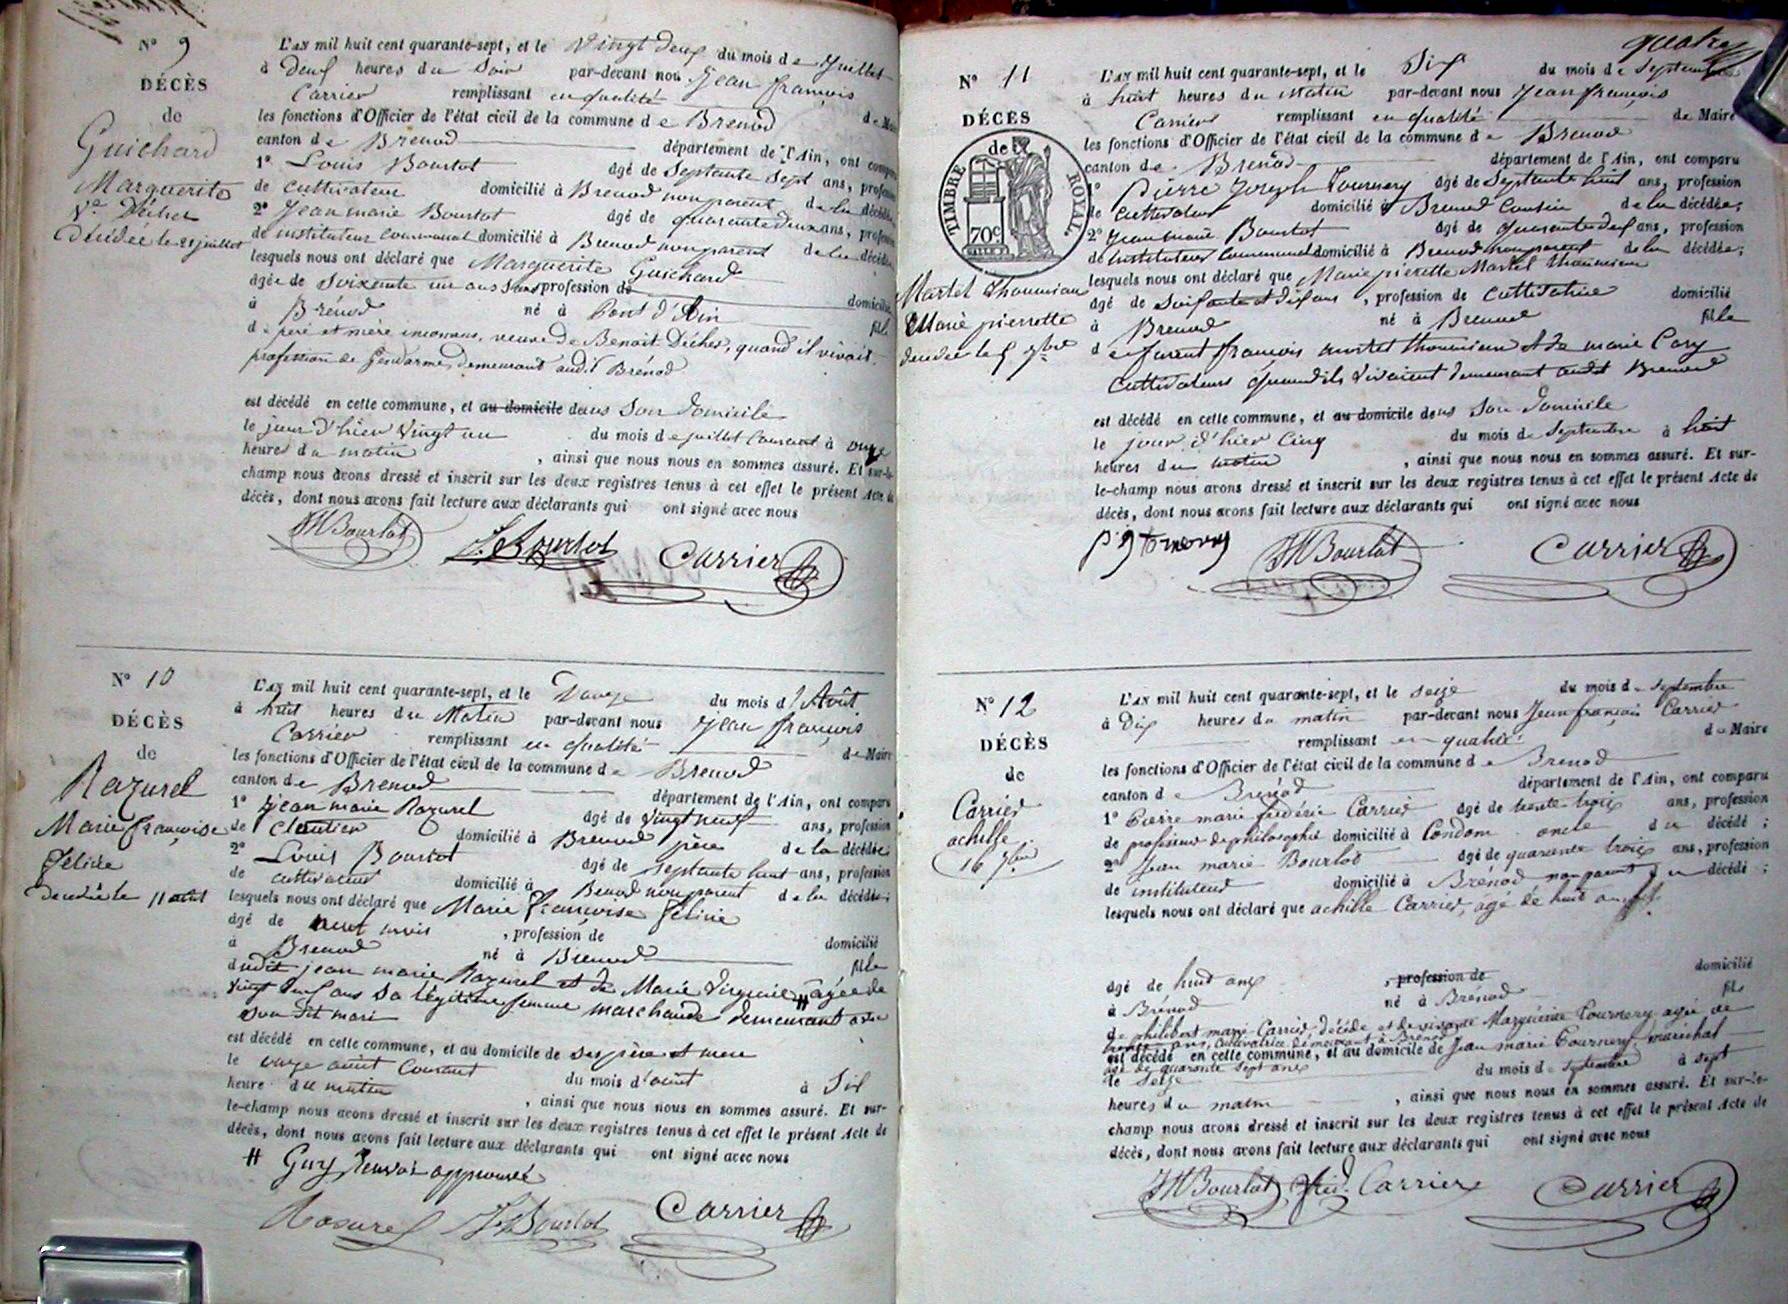 N° 9
DÉCÈS
de
Guichard
Marguerite
Ve Déchet
décédée le 21 juillet
L'AN mil huit cent quarante-sept, et le vingt deux du mois de Juillet
à deux heures du Soir par-devant nous Jean françois
Carrier remplissant en qualité de Maire
les fonctions d'Officier de l'état civil de la commune de Brenod
canton de Brenod département de l'Ain, ont comparu
1° Louis Bourlot âgé de Septante Sept ans, profession
de cultivateur domicilié à Brenod non parent de la décédée
2° Jean marie Bourlot âgé de quarante deux ans, profession
de instituteur communal domicilié à Brenod non parent de la décédée
lesquels nous ont déclaré que Marguerite Guichard
âgée de Soixante un ans Sans profession de
à Brénod né à Pont d'Ain domicilié
de père et mère inconnus, veuve de Benoit Déchet, quand il vivait fille
profession de Gendarme, demeurant audit Brénod
est décédé en cette commune, et au domicile dans Son domicile
le jour d'hier vingt un du mois de juillet courant à onze
heures du matin , ainsi que nous nous en sommes assuré. Et sur-le-
champ nous avons dressé et inscrit sur les deux registres tenus à cet effet le présent Acte de
décès, dont nous avons fait lecture aux déclarants qui ont signé avec nous
JM Bourlot Ls Bourlot Carrier
N° 10
DÉCÈS
de
Razurel
Marie françoise
félicie
décédée le 11 août
L'AN mil huit cent quarante-sept, et le Douze du mois d'Août
à huit heures du Matin par-devant nous jean françois
Carrier remplissant en qualité de Maire
les fonctions d'Officier de l'état civil de la commune de Brenod
canton de Brenod département de l'Ain, ont comparu
1° Jean marie Razurel âgé de vingt neuf ans, profession
de cloutier domicilié à Brenod père de la décédée;
2° Louis Bourlot âgé de septante huit ans, profession
de cultivateur domicilié à Brenod non parent de la décédée;
lesquels nous ont déclaré que Marie françoise félicie
âgé de neuf mois , profession de
à Brenod né à Brenod domicilié
dudit jean marie Razurel et de Marie Virginie # âgée de fille
vingt neuf ans Sa légitime femme marchande demeurant avec
son dit mari
est décédé en cette commune, et au domicile de Ses père et mère
le onze août courant du mois d'août à Six
heure du matin , ainsi que nous nous en sommes assuré. Et sur-
le-champ nous avons dressé et inscrit sur les deux registres tenus à cet effet le présent Acte de
décès, dont nous avons fait lecture aux déclarants qui ont signé avec nous
# Guy renvoi approuvé
Rasurel Ls Bourlot Carrier
quatre
N° 11
DÉCÈS
de
TIMBRE ROYAL.
70c
Martel thoumieu
Marie pierrette
décédée le 5 7bre
L'AN mil huit cent quarante-sept, et le Six du mois de Septembre
à huit heures du Matin par-devant nous Jean françois
Carrier remplissant en qualité de Maire
les fonctions d'Officier de l'état civil de la commune de Brenod
canton de Brenod département de l'Ain, ont comparu
1° Pierre Joseph Tournery âgé de Septante huit ans, profession
de cultivateur domicilié à Brenod Cousin de la décédée;
2° Jean marie Bourlot âgé de quarante deux ans, profession
de Instituteur Communal domicilié à Brenod non parent de la décédée;
lesquels nous ont déclaré que Marie pierrette Martel thoumieu
âgé de Soixante et dix ans , profession de cultivatrice domicilié
à Brenod né à Brenod fille
de furent françois martel thoumieu et de marie Cary
Cultivateurs quand ils vivaient demeurant audit Brenod
est décédé en cette commune, et au domicile dans Son domicile
le jour d'hier Cinq du mois de Septembre à huit
heures du matin , ainsi que nous nous en sommes assuré. Et sur-
le-champ nous avons dressé et inscrit sur les deux registres tenus à cet effet le présent Acte de
décès, dont nous avons fait lecture aux déclarants qui ont signé avec nous
JM Bourlot Carrier
N° 12
DÉCÈS
de
Carrier
achille
16 7bre
L'AN mil huit cent quarante-sept, et le seize du mois de Septembre
à Dix heures du matin par-devant nous Jean françois Carrier
remplissant en qualité de Maire
les fonctions d'Officier de l'état civil de la commune de Brenod
canton de Brénod département de l'Ain, ont comparu
1° Pierre marie frédéric Carrier âgé de trente trois ans, profession
de professeur de philosophie domicilié à Condom oncle du décédé;
2° Jean marie Bourlot âgé de quarante trois ans, profession
de instituteur domicilié à Brénod non parent du décédé;
lesquels nous ont déclaré que achille Carrier, âgé de huit ans
âgé de huit ans , profession de domicilié
à Brénod né à Brénod fils
de philibert marie Carrier, décédé et de vivante Marguerite Tournery agée de
trente ans, cultivatrice demeurant à Brénod
est décédé en cette commune, et au domicile de Jean marie Tournery maréchal
agé de quarante sept ans
le seize du mois de septembre à sept
heures du matin , ainsi que nous nous en sommes assuré. Et sur-le-
champ nous avons dressé et inscrit sur les deux registres tenus à cet effet le présent Acte de
décès, dont nous avons fait lecture aux déclarants qui ont signé avec nous
JM Bourlot fréd. Carrier Carrier